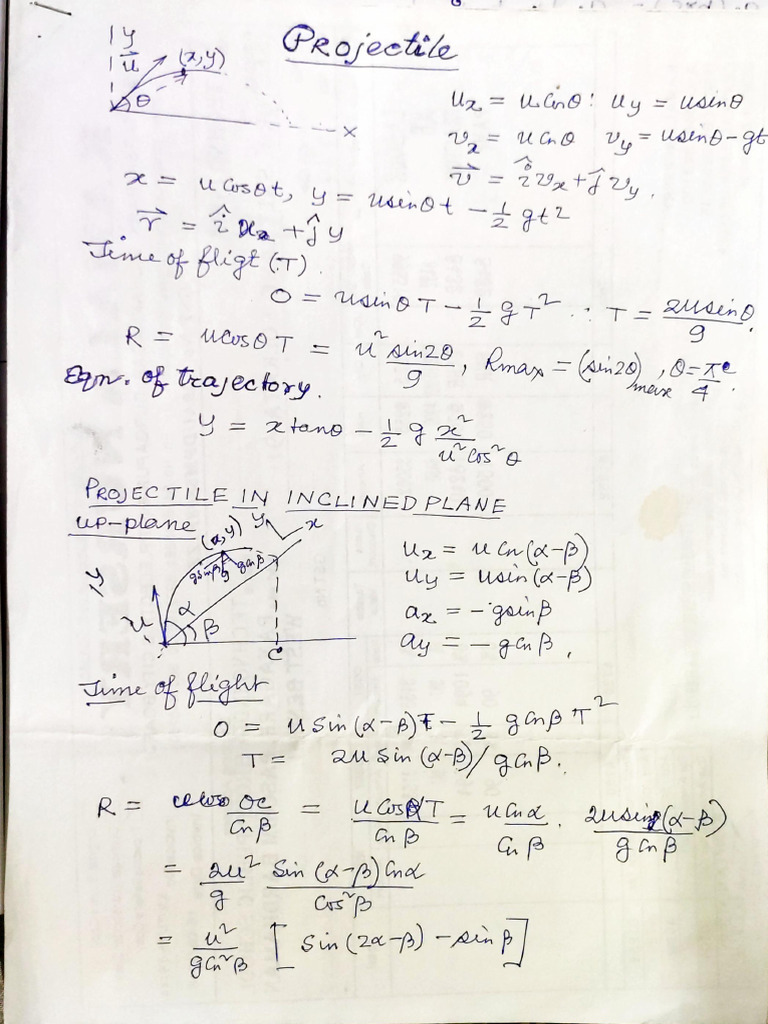 Projectile
y
u⃗
(x,y)
θ
x
uₓ = u cosθ : u_y = usinθ
vₓ = u cnθ v_y = usinθ-gt
v⃗ = îvₓ + ĵv_y.
x = u cosθt, y = usinθt - ½ gt²
r⃗ = îx + ĵy
Time of fligt (T).
0 = usinθ T - ½ g T² ∴ T = 2usinθ/g.
R = ucosθ T = u² sin2θ/g, Rmax = (sin2θ)max, θ = πᶜ/4.
Eqn. of trajectory.
y = x tanθ - ½ g x²/u²cos²θ
PROJECTILE IN INCLINED PLANE
up-plane
(x,y) y x
gsinβ g gcnβ
y
u
α
β
C
uₓ = u cn(α-β)
u_y = usin(α-β)
aₓ = -gsinβ
a_y = -gcnβ,
Time of flight
0 = u Sin(α-β)T - ½ gcnβ T²
T = 2u Sin(α-β)/gcnβ.
R = OC/Cnβ = u CosαT/Cnβ = u Cnα/Cnβ . 2usin(α-β)/g cnβ
= 2u²/g Sin(α-β)Cnα/Cos²β
= u²/gcn²β [Sin(2α-β) - sinβ]